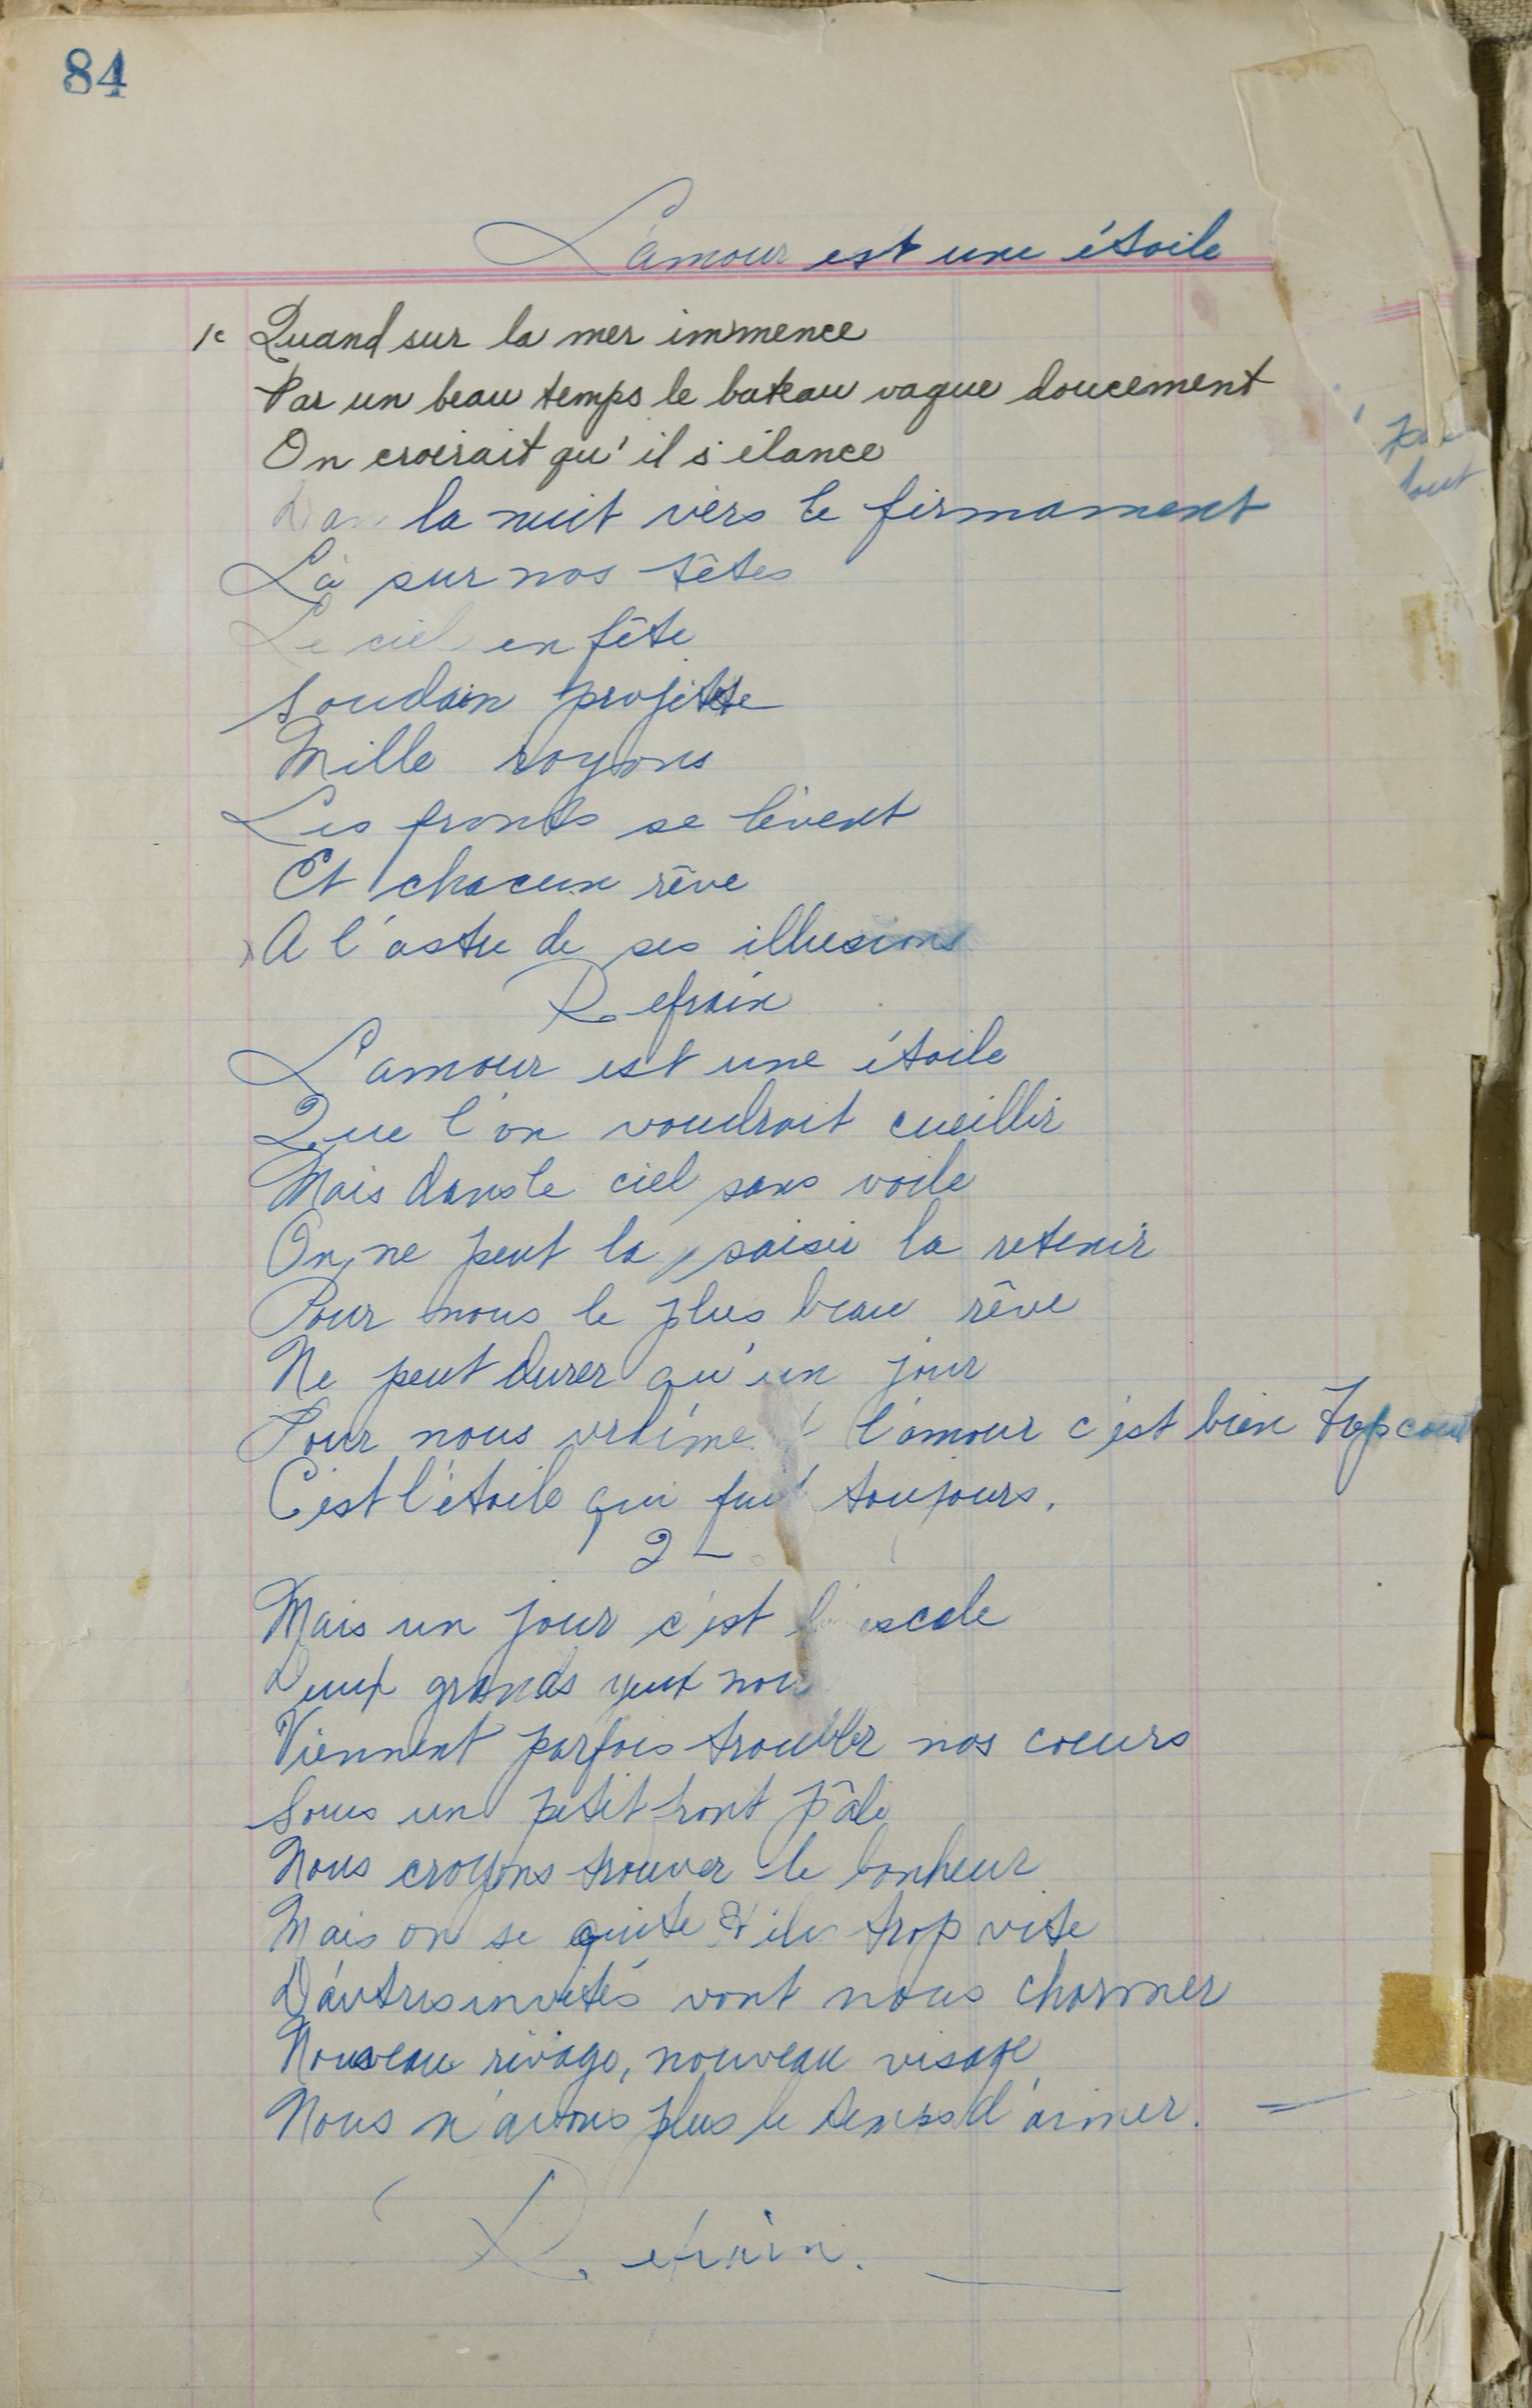 84
L'amour est une étoile
1e Quand sur la mer immence
Par un beau temps le bateau vague doucement
On croirait qu'il s'élance
Dan la nuit vers le firmament
Là sur nos têtes
Le ciel en fête
Soudain projette
Mille rayons
Les fronts se lèvent
Et chacun rêve
A l'astre de ses illusions
Refrain
L'amour est une étoile
Que l'on voudrait cueillir
Mais dans le ciel sans voile
On ne peut la saisir la retenir
Pour nous le plus beau rêve
Ne peut durer qu'un jour
Pour nous l'amour c'est bien trop court
C'est l'étoile qui fuit toujours.
2
Mais un jour c'est l'escale
Deux grands yeux
Viennent parfois troubler nos coeurs
Sous un petit front pâle
Nous croyons trouver le bonheur
Mais on se quite trop vite
D'autres invités vont nous charmer
Nouveau rivage, nouveau visage
Nous n'avons plus le temps d'aimer.
Refrain.